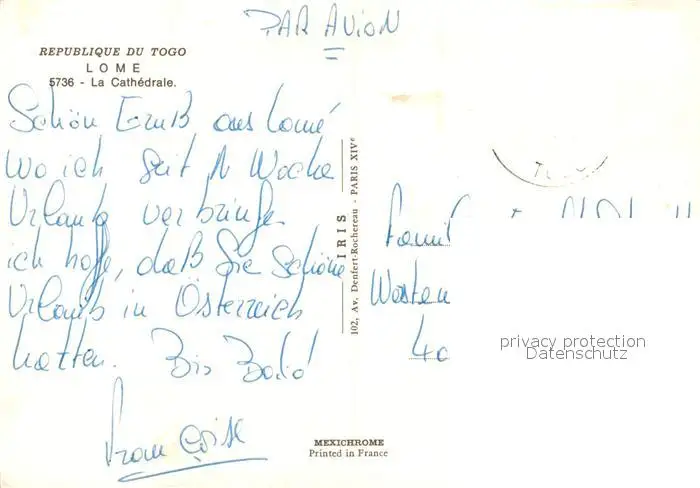 PAR AVION
REPUBLIQUE DU TOGO
LOME
5736 - La Cathédrale.
Schön Gruß aus Lomé
Wo ich seit 1 Woche
Urlaub verbringe.
ich hoffe, daß Sie Schöne
Urlaub in Österreich
hatten. Bis Bald
Françoise
IRIS
102, Av. Denfert-Rochereau - PARIS XIVe
Famil
Westen
40
privacy protection
Datenschutz
MEXICHROME
Printed in France